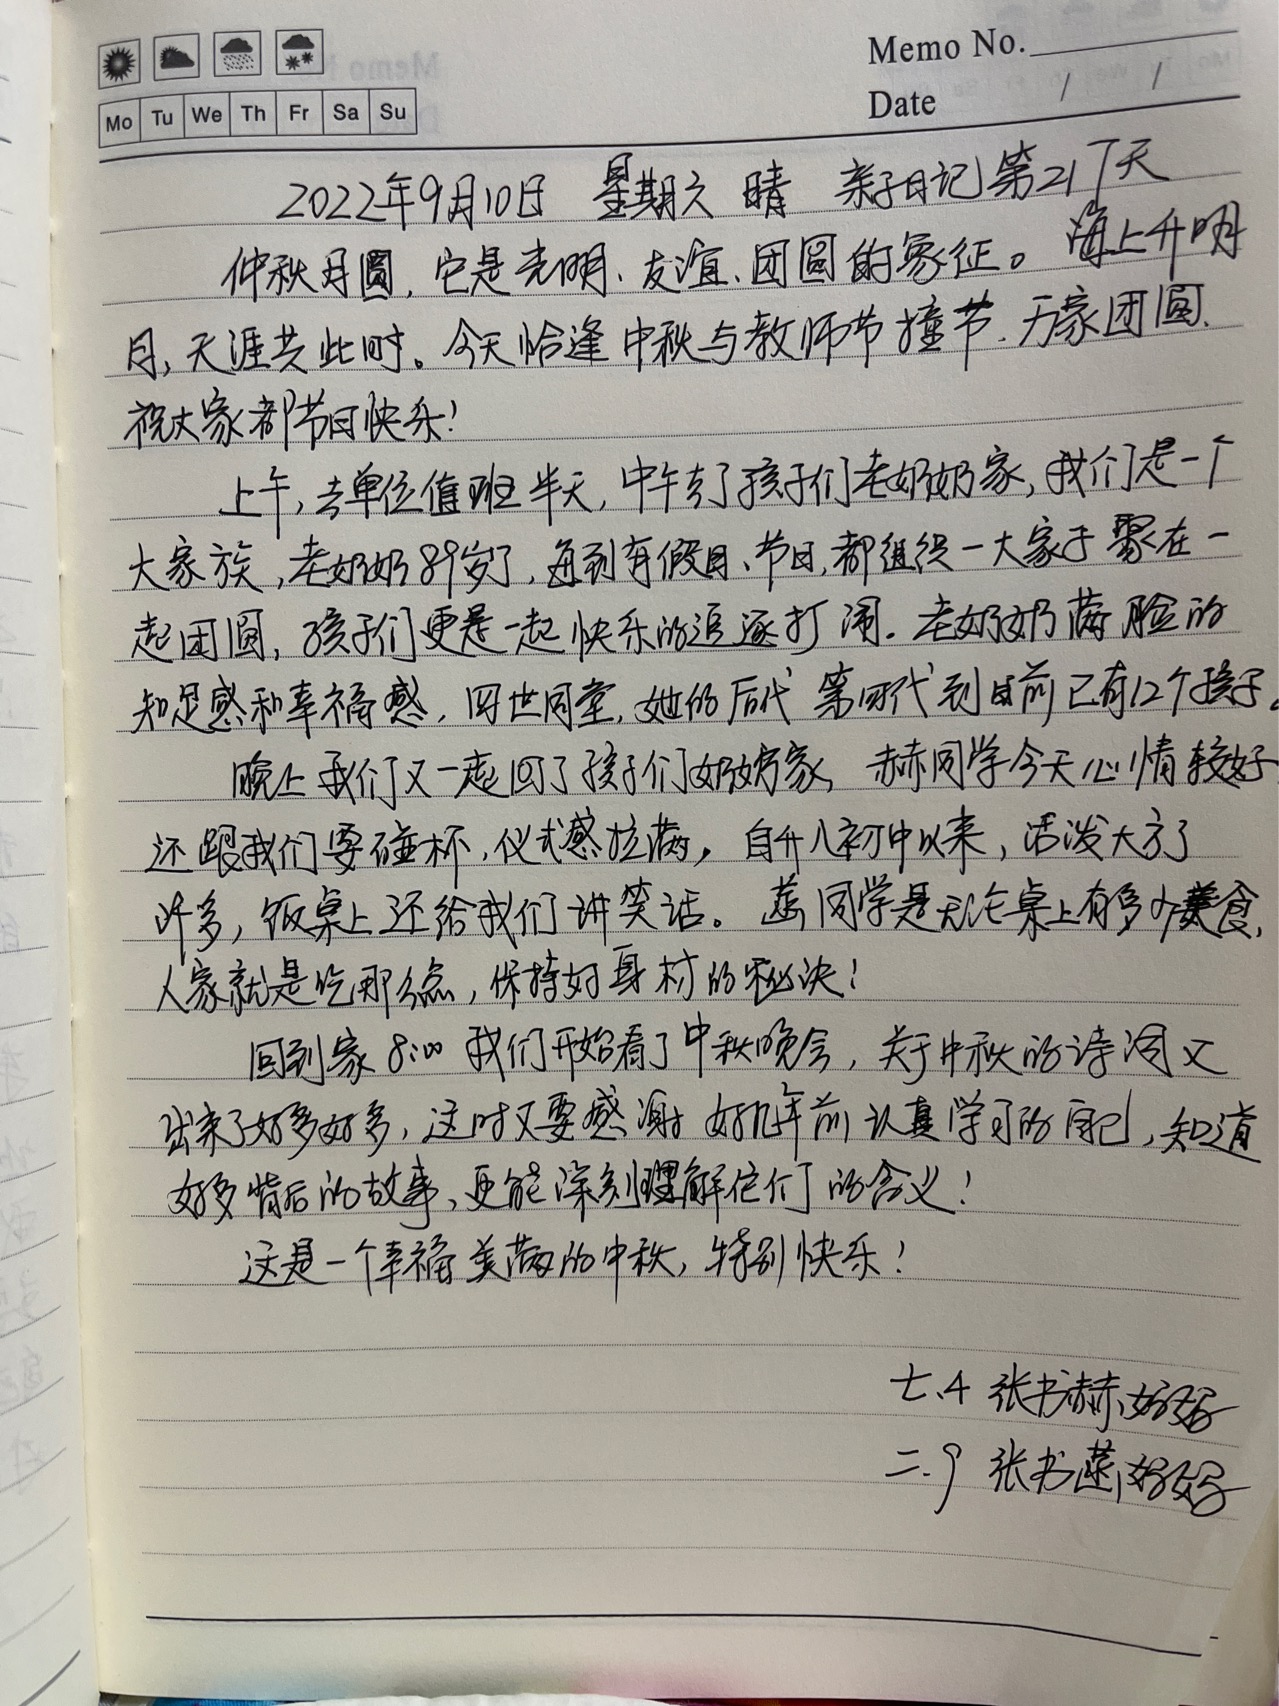 Memo No.
Mo Tu We Th Fr Sa Su
Date / /
2022年9月10日 星期六 晴 亲子日记第217天
仲秋月圆,它是光明、友谊、团圆的象征。海上升明
月,天涯共此时。今天恰逢中秋与教师节撞节.万家团圆、
祝大家都节日快乐!
上午,去单位值班半天,中午去了孩子们老奶奶家,我们是一个
大家族,老奶奶89岁了,每到有假日、节日,都组织一大家子聚在一
起团圆,孩子们更是一起快乐的追逐打闹.老奶奶满脸的
知足感和幸福感,四世同堂,她的后代第四代到目前已有12个孩子。
晚上我们又一起回了孩子们奶奶家,赫同学今天心情较好
还跟我们要碰杯,仪式感拉满,自升入初中以来,活泼大方了
许多,饭桌上还给我们讲笑话。 同学是无论桌上有多少美食,
人家就是吃那么点,保持好身材的秘决!
回到家8:00我们开始看了中秋晚会,关于中秋的诗词又
出来了好多好多,这时又要感谢好几年前认真学习的自己,知道
好多背后的故事,更能深刻理解他们的含义!
这是一个幸福美满的中秋,特别快乐!
七.4 张书赫妈妈
二.9 张书 妈妈